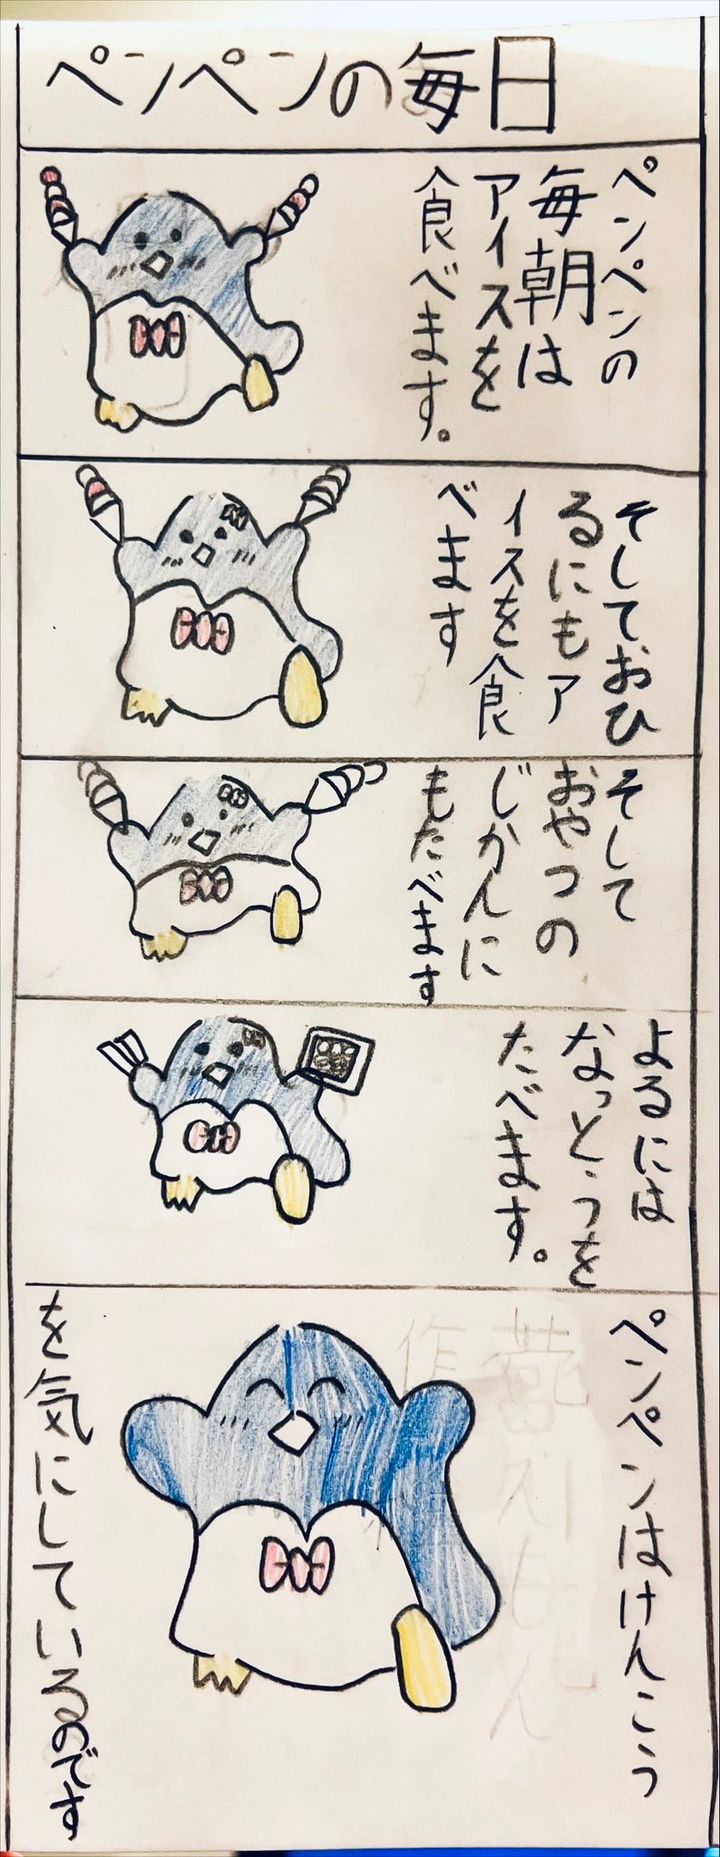 ペンペンの毎日
ペンペンの
毎朝は
アイスを
食べます。
そしておひ
るにもア
イスを食
べます
そして
おやつの
じかんに
もたべます
よるには
なっとうを
たべます。
ペンペンはけんこう
を気にしているのです